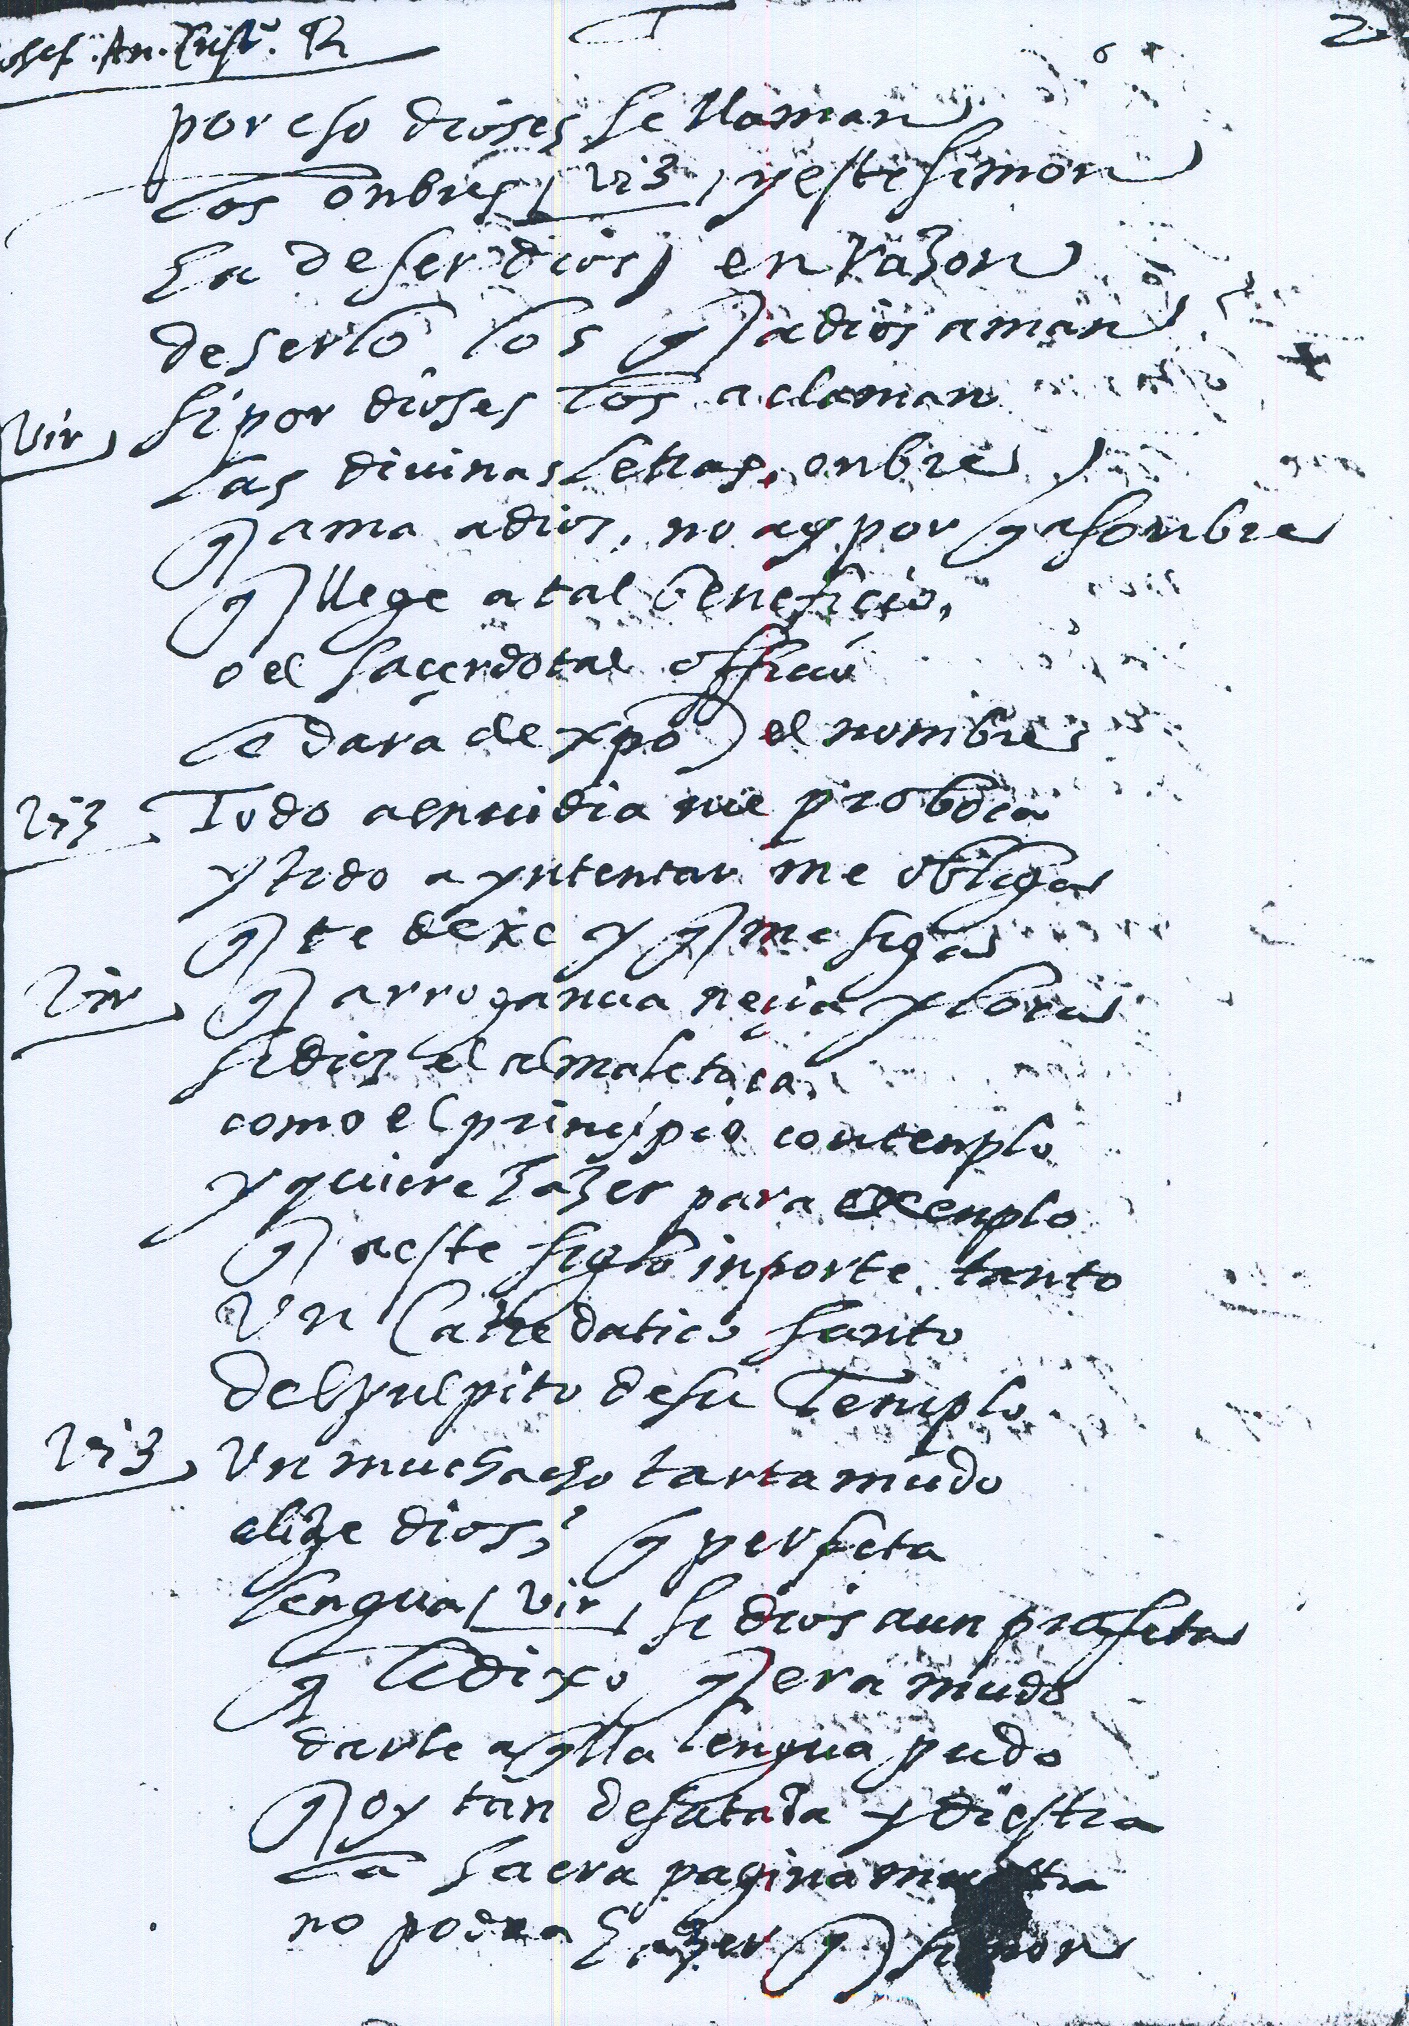 por eso dioses se llaman
los onbres / viz / y este simon
ha de ser dios / en razon
de serlo los q a dios aman
vir si por dioses los aclaman
las diuinas letras, onbre
q ama a dios, no ay por q asonbre
q llege a tal beneficio,
o el sacerdotal officio
le dara de xpo el nombre
viz Todo a enuidia me proboca
y todo a yntentar me obliga
q te dexe y q me siga
vir q arrogancia necia y loca
si dios el alma le toca,
como el principio contenplo
y quiere hazer para exenplo
q a este siglo inporte tanto
Un Catredatico santo
del pulpito de su Templo
viz Un muchacho tartamudo
elige dios, q perfeta
lengua / vir / si dios a un profeta
q le dixo q era mudo
darle aqlla lengua pudo
q oy tan desatada y diestra
la sacra pagina muestra
no podra hazer q simon